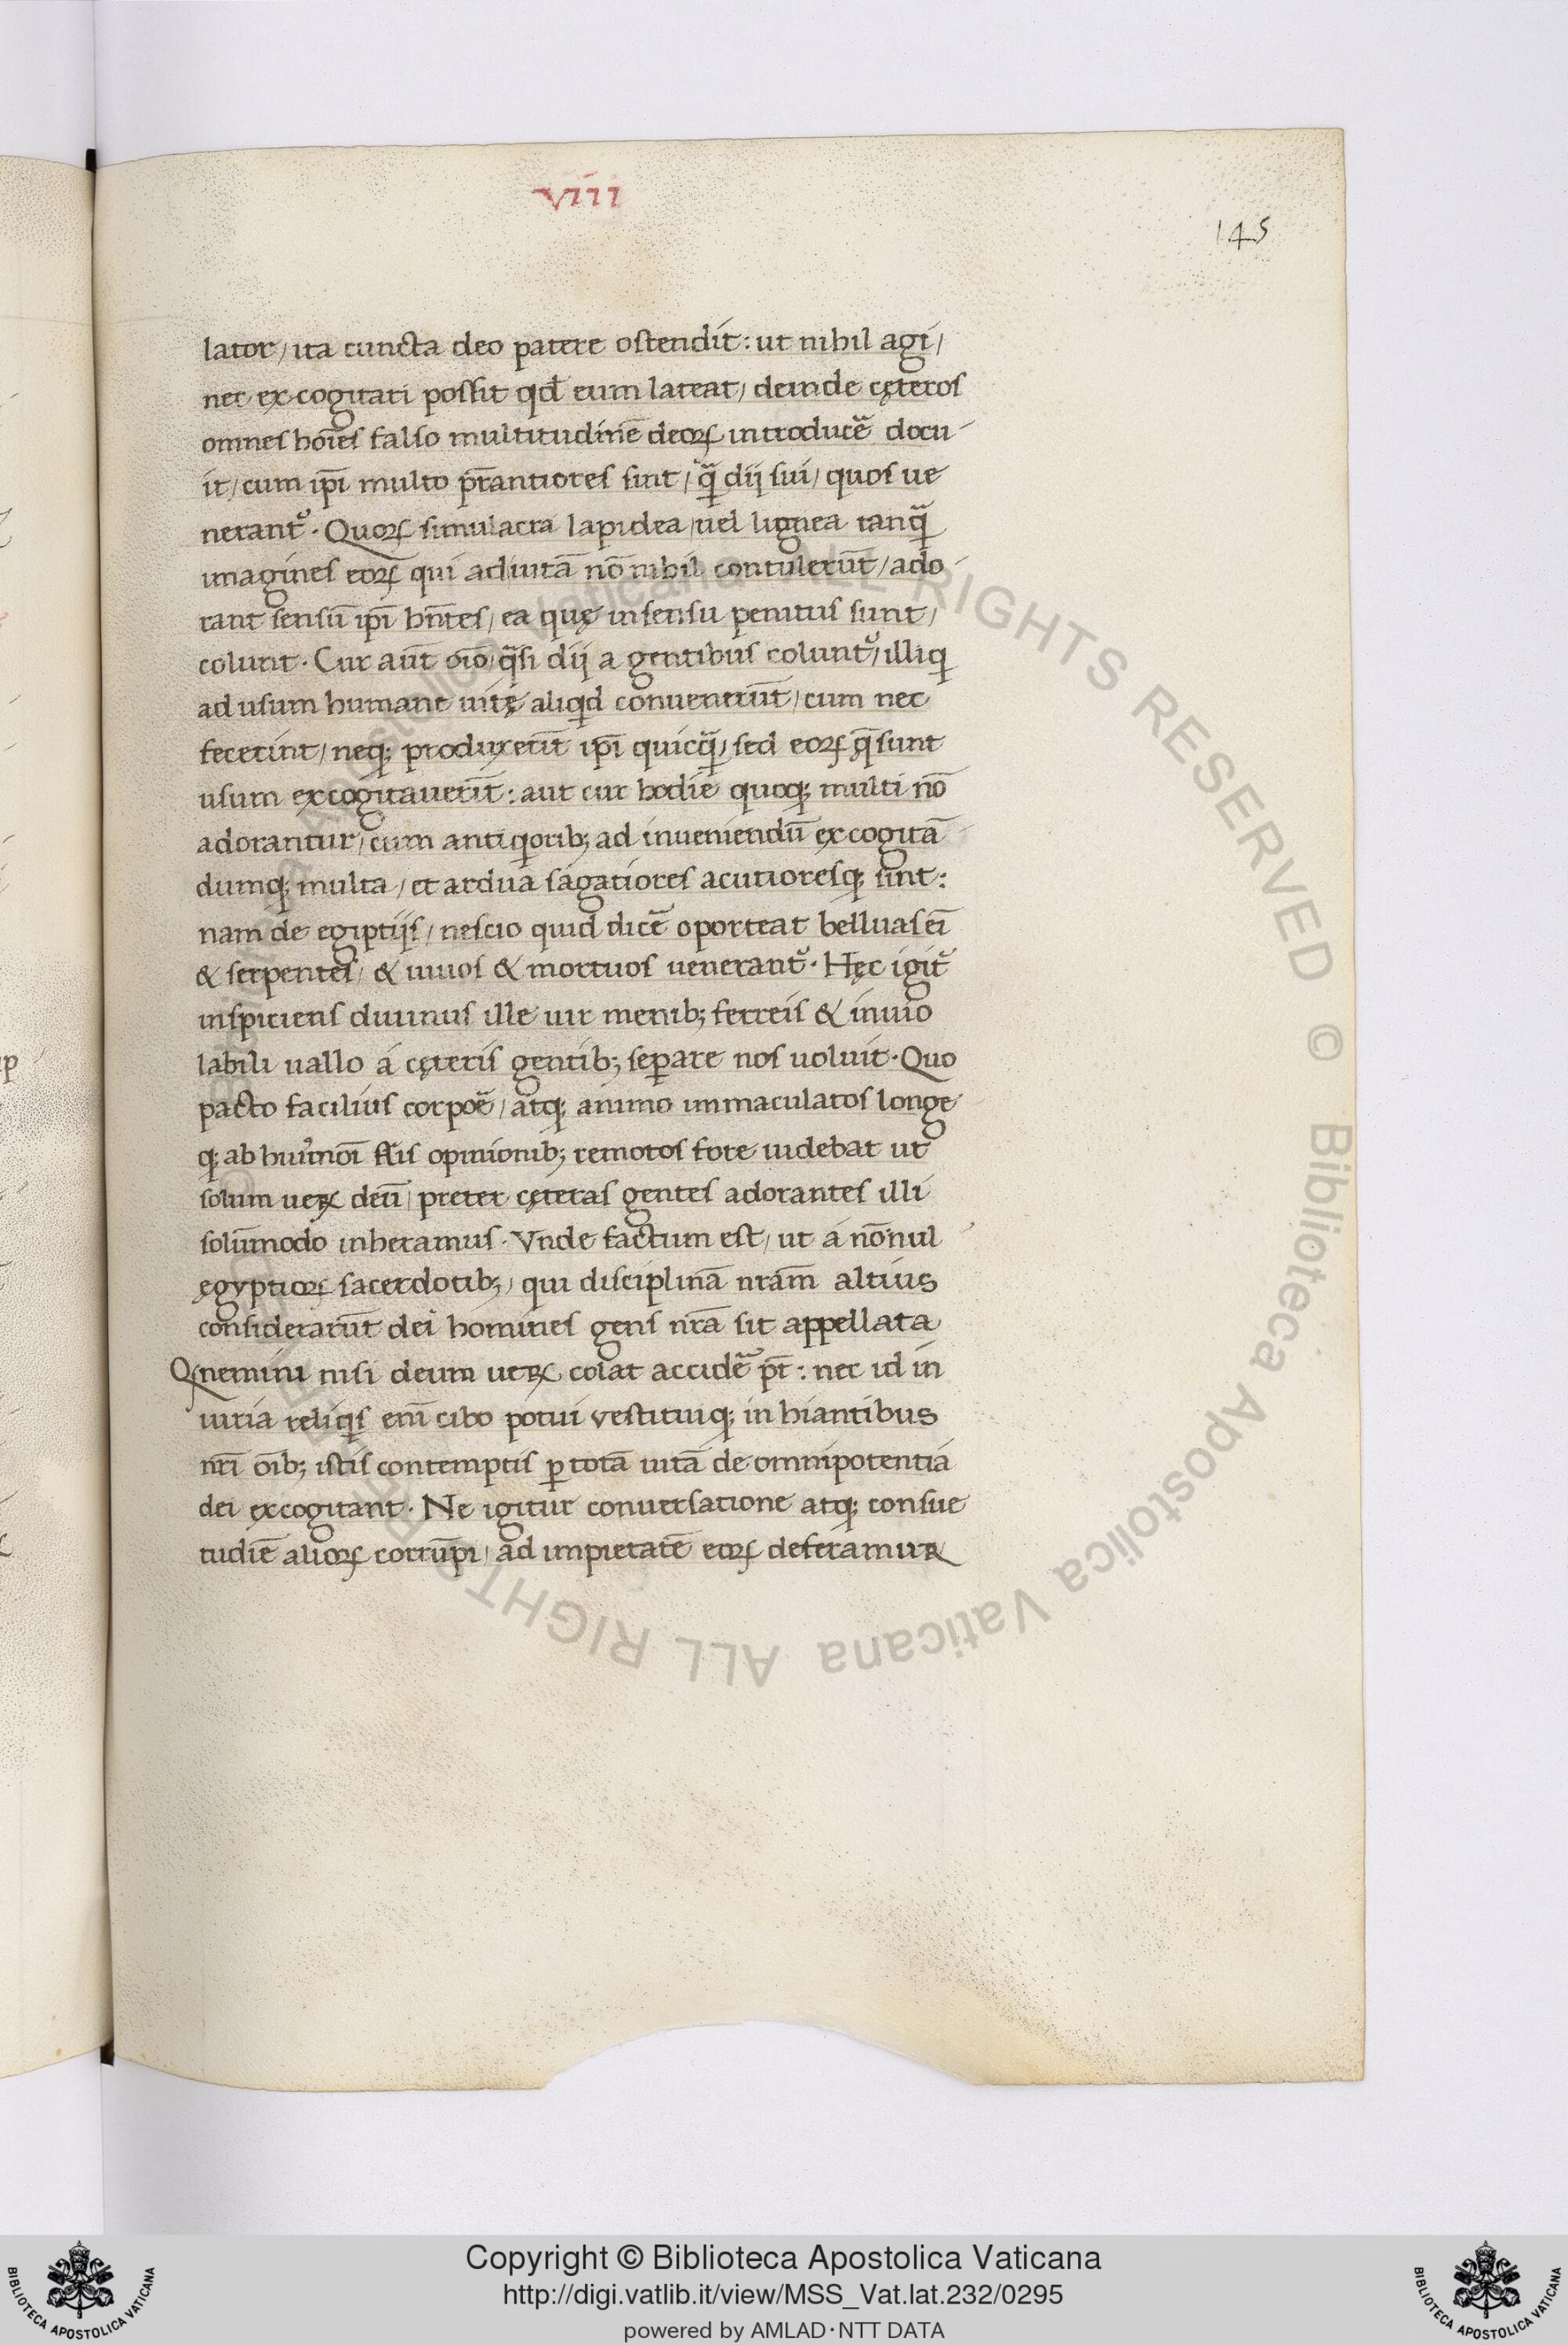 viii
145
lator / ita cuncta deo patere ostendit : ut nihil agi /
nec excogitari possit qd eum lateat / deinde cęteros
omnes hoīes falso multitudinē deoꝝ introducẽ docu-
it / cum ip̄i multo p̄stantiores sint / q̃ dij sui / quos ue
nerant᷑ . Quoꝝ simulacra lapidea / uel lignea tanq̃
imagines eoꝝ qui ad uitā nō nihil contulerūt / ado-
rant sensū ip̄i hn̄tes / ea quę in sensu penitus sunt /
colunt . Cur aūt oīo / q̃si dij a gentibus colunt᷑ / illi q
ad usum humane uitę aliqd conuenerūt / cum nec
fecerint / neq; produxerūt ip̄i quicq̃ / sed eoꝝ q̄ sunt
usum excogitauerūt : aut cur hodie quoq; multi nō
adorantur / cum antiqorib; ad inueniendū excogitā-
dumq; multa / et ardua sagatiores acutioresq; sint :
nam de egiptijs / nescio quid dicẽ oporteat belluas eī
& serpentes / & uiuos & mortuos uenerant᷑ . Hęc igit᷑
inspiciens diuinus ille uir menib; ferreis & inuio
labili uallo á cęteris gentib; seꝑare nos uoluit . Quo
pacto facilius corpoẽ / atq; animo immaculatos longe
q; ab huiᷤmoī flīs opinionib; remotos fore uidebat ut
solum ueꝝ deū / preter cęteras gentes adorantes illi
solūmodo inheramus . Vnde factum est / ut á nōnul
ęgyptioꝝ sacerdotib; / qui disciplinā nr̄am altius
considerarūt dei homines gens nr̄a sit appellata
Qꝫ nemini nisi deum ueꝝ colat accidẽ pt̄ : nec id in
iuria reliqis enī cibo potui vestituiq; inhiantibus
nr̄i oīb; istis contemptis ꝑ totā uitā de omnipotentia
dei excogitant . Ne igitur conuersatione atq; consue
tudiē alioꝝ corrūpi / ad impietatē eoꝝ deferamur
Copyright © Biblioteca Apostolica Vaticana
http://digi.vatlib.it/view/MSS_Vat.lat.232/0295
powered by AMLAD·NTT DATA
© Biblioteca Apostolica Vaticana ALL RIGHTS RESERVED
BIBLIOTECA APOSTOLICA VATICANA
BIBLIOTECA APOSTOLICA VATICANA